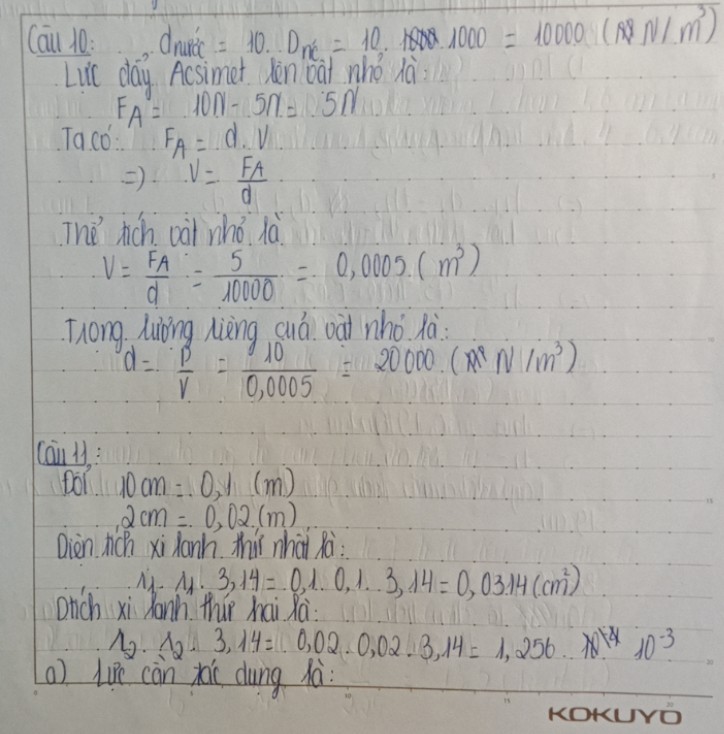 Câu 10: dnước = 10. Dnc = 10. 1000 = 10000 (N/m³)
Lực đẩy Acsimet lên vật nhỏ là:
FA = 10N - 5N = 5N
Ta có: FA = d.V
=) V = FA/d
Thể tích vật nhỏ là
V = FA/d = 5/10000 = 0,0005 (m³)
Trọng lượng riêng cuả vật nhỏ là:
d = P/V = 10/0,0005 = 20000 (N/m³)
Câu 11:
Đổi 10cm = 0,1 (m)
2cm = 0,02 (m)
Diện tích xi lanh thứ nhất là:
r1. r1. 3,14 = 0,1. 0,1. 3,14 = 0,0314 (cm²)
Dtích xi lanh thứ hai là:
r2. r2. 3,14 = 0,02. 0,02. 3,14 = 1,256. 10⁻³
a) Lực cần tác dụng là:
KOKUYO